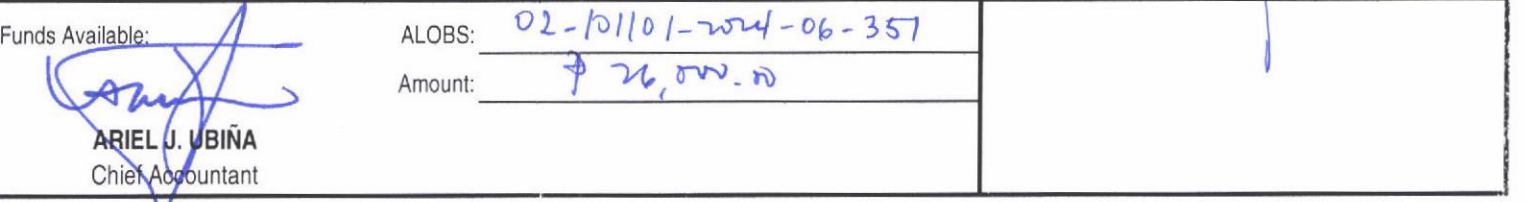 Funds Available:
ALOBS: 02-101101-2024-06-357
Amount: ₱ 26,000.00
ARIEL J. UBIÑA
Chief Accountant